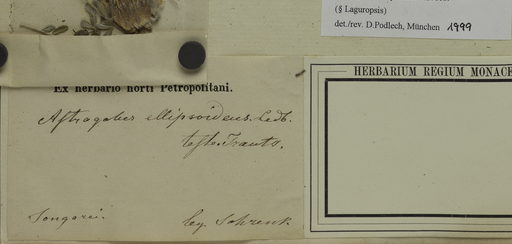 (§ Laguropsis)
det./rev. D.Podlech, München 1999
Ex herbario horti Petropolitani.
HERBARIUM REGIUM MONACE
Astragalus ellipsoideus. Ledb.
teste Trautv.
Songarei.
leg. Schrenk.